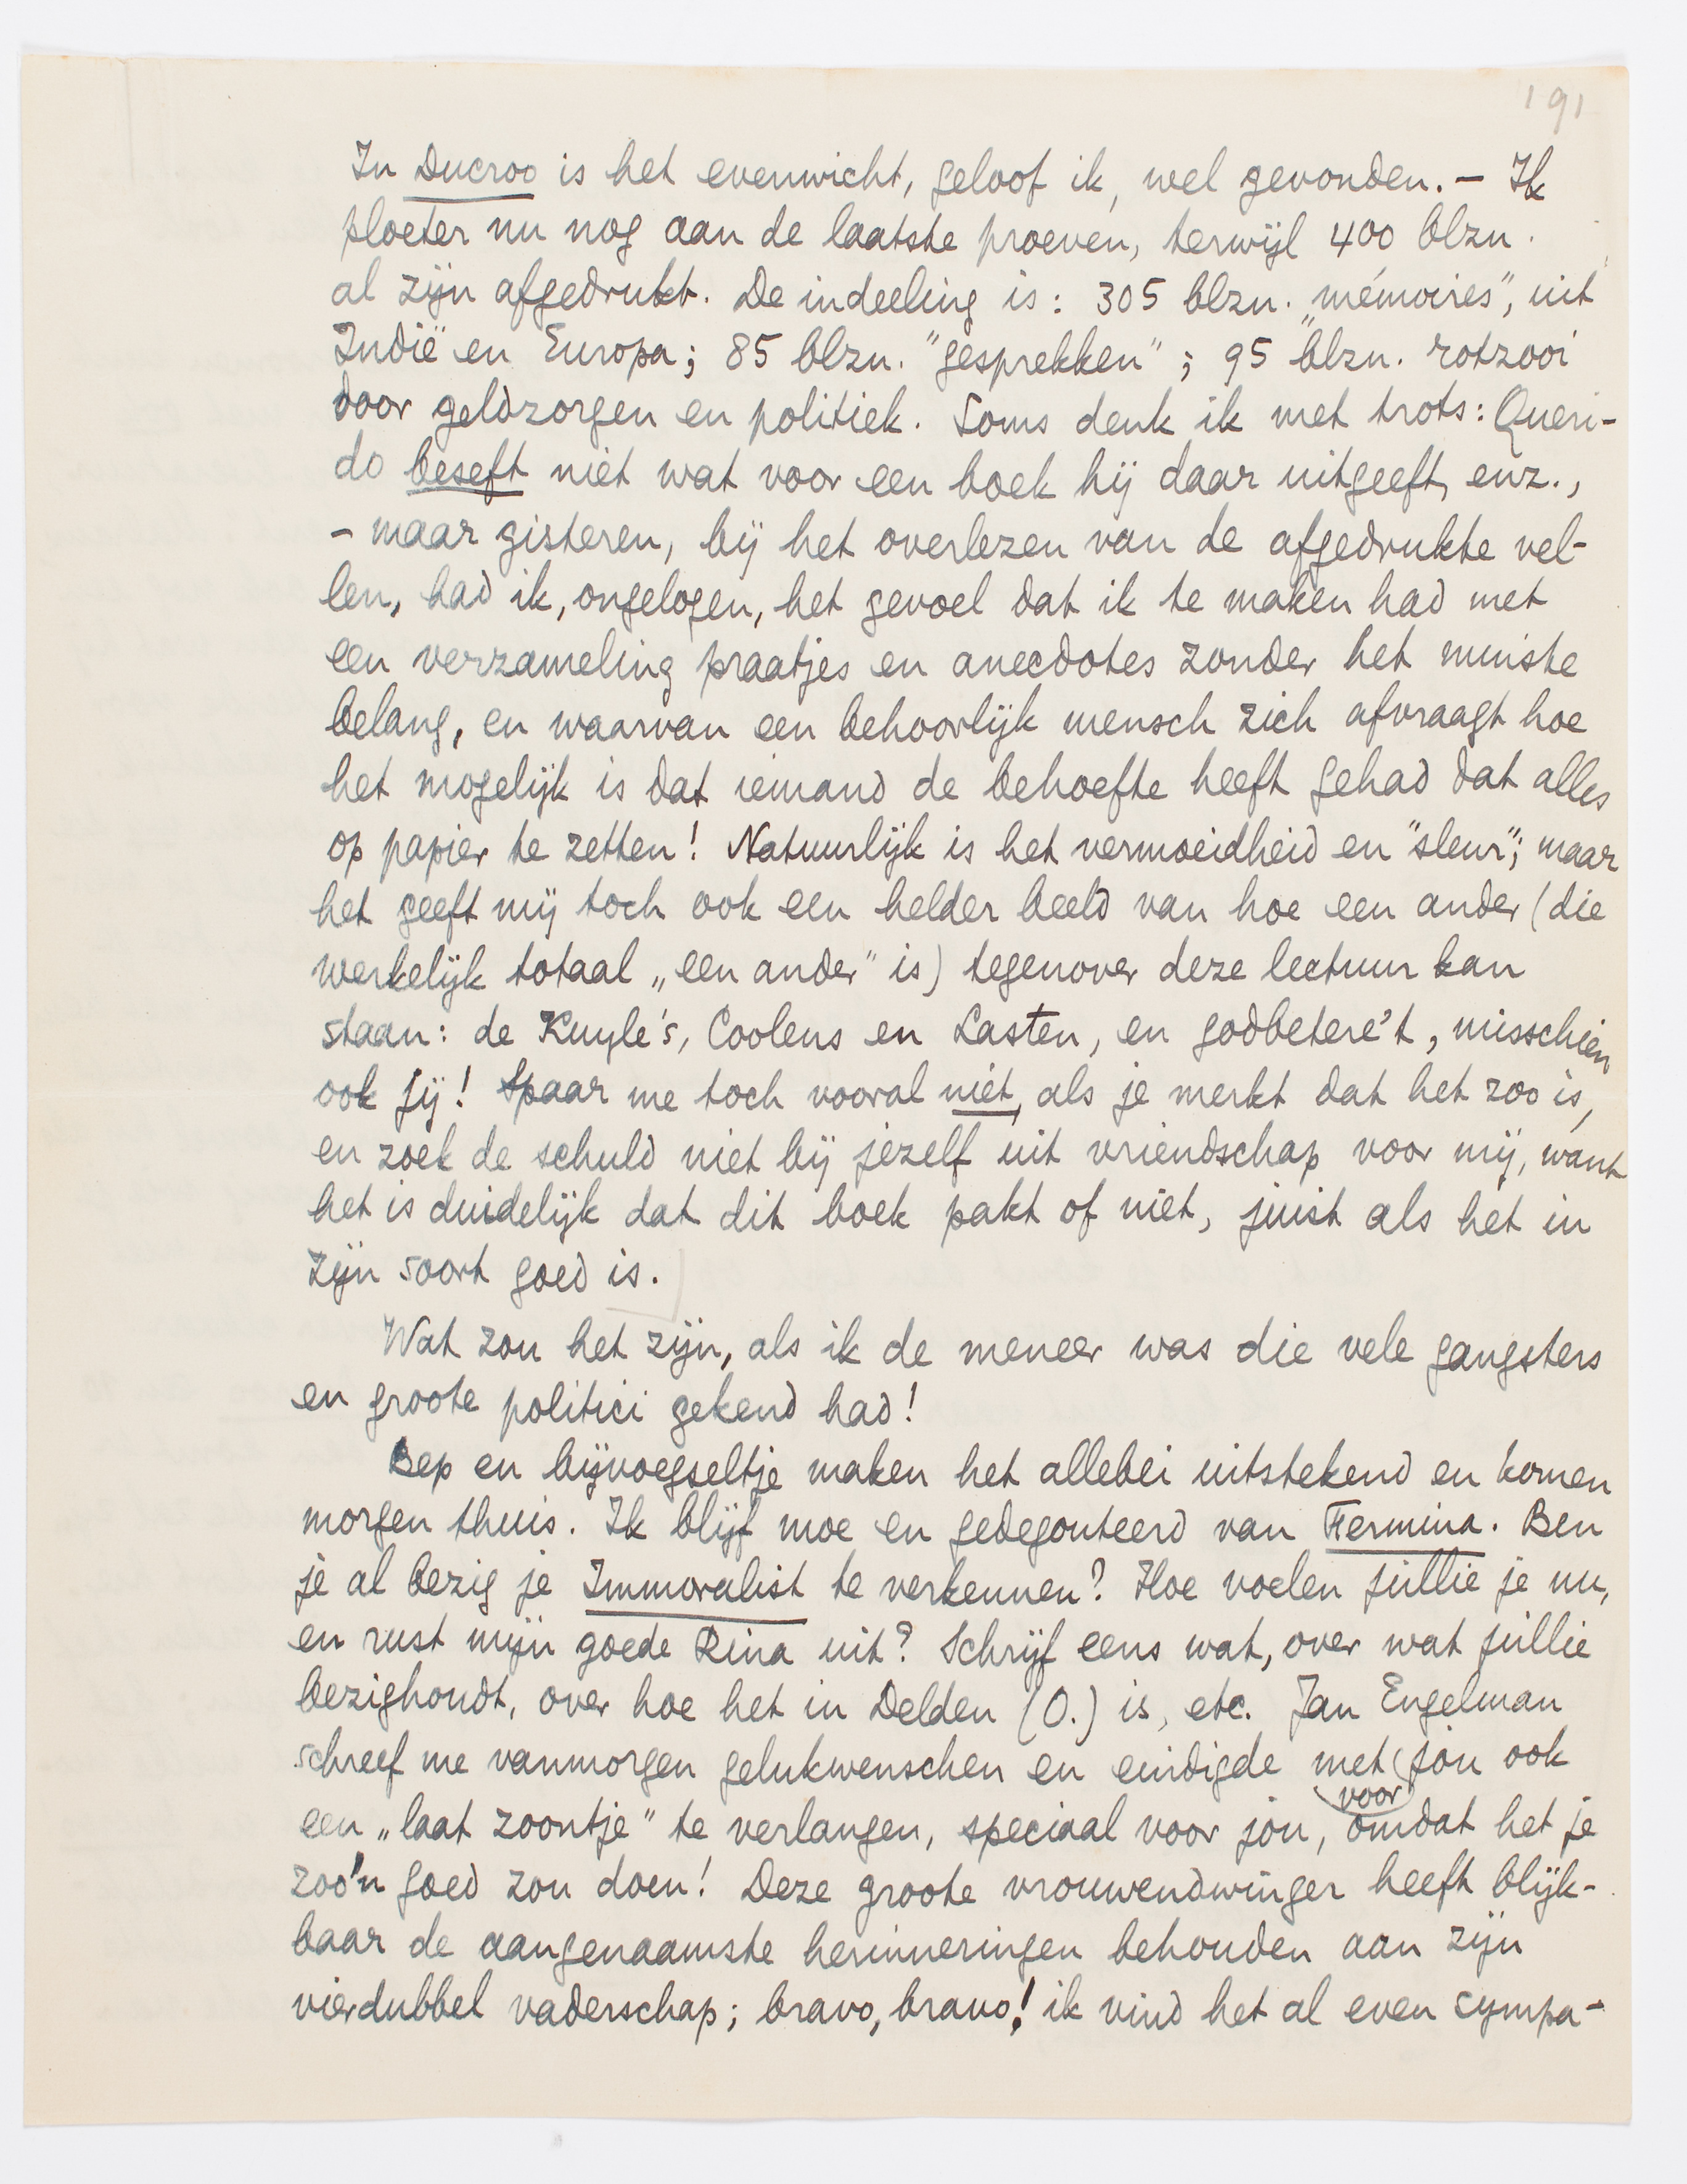 191
In Ducroo is het evenwicht, geloof ik, wel gevonden. – Ik
ploeter nu nog aan de laatste proeven, terwijl 400 blzn.
al zijn afgedrukt. De indeeling is: 305 blzn. „mémoires”, uit
Indië en Europa; 85 blzn. "gesprekken"; 95 blzn. rotzooi
door geldzorgen en politiek. Soms denk ik met trots: Queri-
do beseft niet wat voor een boek hij daar uitgeeft, enz.,
– maar gisteren, bij het overlezen van de afgedrukte vel-
len, had ik, ongelogen, het gevoel dat ik te maken had met
een verzameling praatjes en anecdotes zonder het minste
belang, en waarvan een behoorlijk mensch zich afvraagt hoe
het mogelijk is dat iemand de behoefte heeft gehad dat alles
op papier te zetten! Natuurlijk is het vermoeidheid en "sleur"; maar
het geeft mij toch ook een helder beeld van hoe een ander (die
werkelijk totaal „een ander” is) tegenover deze lectuur kan
staan: de Kuyle's, Coolens en Lasten, en godbetere't, misschien
ook jij! Spaar me toch vooral niet, als je merkt dat het zoo is,
en zoek de schuld niet bij jezelf uit vriendschap voor mij, want
het is duidelijk dat dit boek pakt of niet, juist als het in
zijn soort goed is.
Wat zou het zijn, als ik de meneer was die vele gangsters
en groote politici gekend had!
Bep en bijvoegseltje maken het allebei uitstekend en komen
morgen thuis. Ik blijf moe en gedegouteerd van Fermina. Ben
je al bezig je Immoralist te verkennen? Hoe voelen jullie je nu,
en rust mijn goede Rina uit? Schrijf eens wat, over wat jullie
bezighoudt, over hoe het in Delden (O.) is, etc. Jan Engelman
schreef me vanmorgen gelukwenschen en eindigde met jou ook
voor
een „laat zoontje” te verlangen, speciaal voor jou, omdat het je
zoo'n goed zou doen! Deze groote vrouwendwinger heeft blijk-
baar de aangenaamste herinneringen behouden aan zijn
vierdubbel vaderschap; bravo, bravo! ik vind het al even sympa-